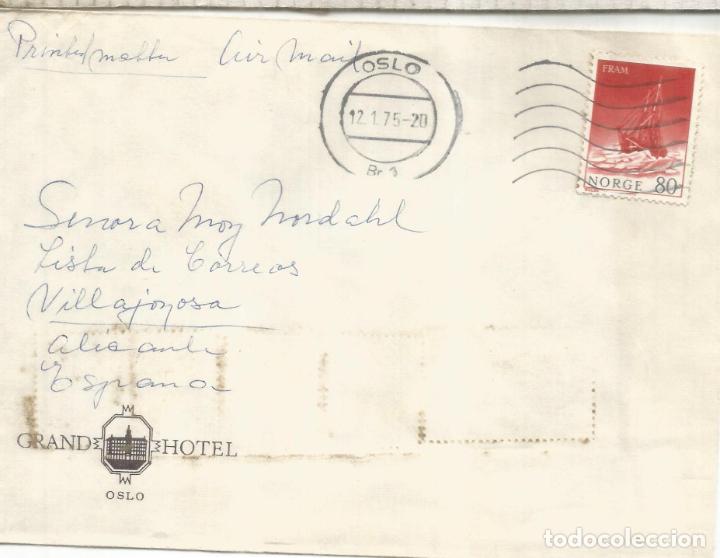 Printed matter Air Mail
OSLO
12.1.75-20
Br 3
FRAM
NORGE 80
Senora Moy Nordahl
Lista de Correos
Villajoyosa
Alicante
Espana
GRAND HOTEL
OSLO
todocoleccion.net